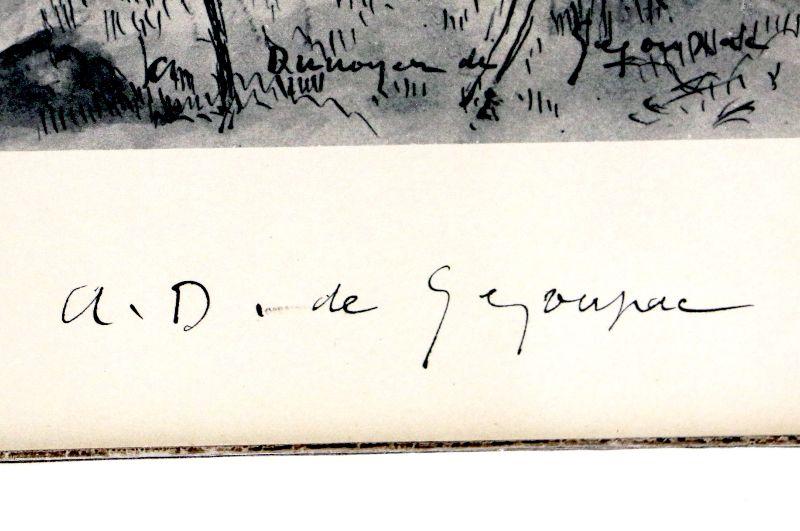 a Dunoyer de Segonzac
a. D. de Segonzac